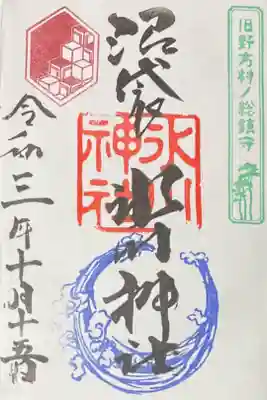 旧野方村ノ総鎮守
沼袋
氷川神社
氷川神社
令和三年十月十五日